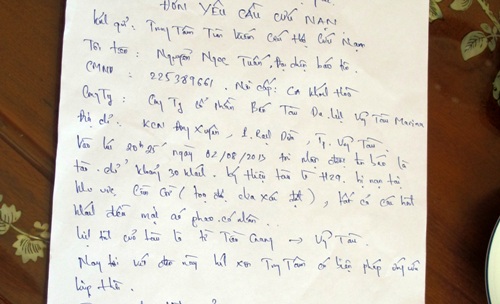 ĐƠN YÊU CẦU CỨU NẠN
Kính gửi: Trung Tâm Tìm Kiếm Cứu Hộ Cứu Nạn
Tôi tên: Nguyễn Ngọc Tuấn,
CMND: 225389661. Nơi cấp: CA Khánh Hòa
Công Ty: Công Ty cổ phần Bến Tàu Du lịch Vũng Tàu Marina
Địa chỉ: KCN Đông Xuyên, P. Rạch Dừa, Tp. Vũng Tàu
Vào lúc 20h25 ngày 02/08/2013 tôi nhận được tin báo là
tàu chở khoảng 30 khách. Ký hiệu tàu là H29. bị nạn tại
khu vực Cần Giờ (tọa độ chưa xác định), tất cả hành
khách đều mặc áo phao cá nhân.
Lịch trình của tàu là từ Tiền Giang → Vũng Tàu.
Nay tôi viết đơn này kính xin Trung Tâm có biện pháp ứng cứu
kịp thời.